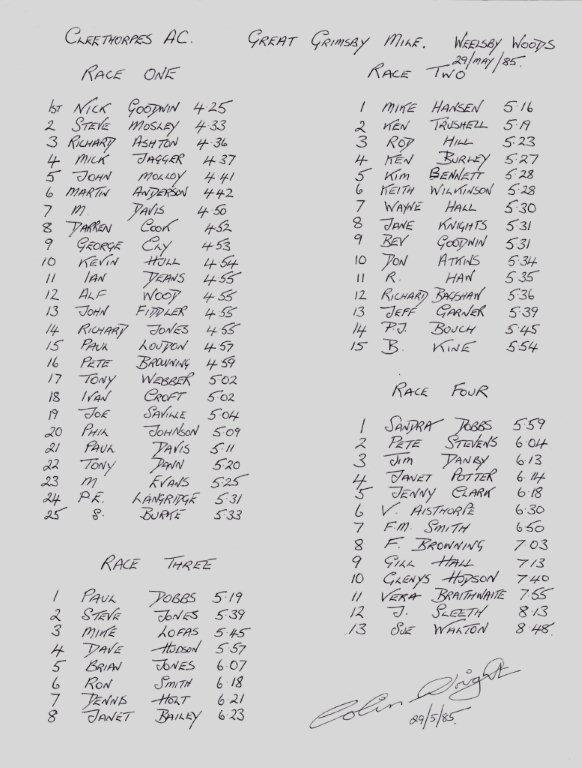 CLEETHORPES AC. GREAT GRIMSBY MILE. WEELSBY WOODS
29/MAY/85.
RACE ONE
1ST NICK GOODWIN 4.25
2 STEVE MOSLEY 4.33
3 RICHARD ASHTON 4.36
4 MICK JAGGER 4.37
5 JOHN MOLLOY 4.41
6 MARTIN ANDERSON 4.42
7 M. DAVIS 4.50
8 DARREN COOK 4.52
9 GEORGE ELY 4.53
10 KEVIN HILL 4.54
11 IAN DEANS 4.55
12 ALF WOOD 4.55
13 JOHN FIDDLER 4.55
14 RICHARD JONES 4.55
15 PAUL LOUDON 4.57
16 PETE BROWNING 4.59
17 TONY WEBBER 5.02
18 IVAN CROFT 5.02
19 JOE SAVILLE 5.04
20 PHIL JOHNSON 5.09
21 PAUL DAVIS 5.11
22 TONY DANN 5.20
23 M EVANS 5.25
24 P.E. LANGRIDGE 5.31
25 S. BURKE 5.33
RACE THREE
1 PAUL DOBBS 5.19
2 STEVE JONES 5.39
3 MIKE LOFAS 5.45
4 DAVE HODSON 5.57
5 BRIAN JONES 6.07
6 RON SMITH 6.18
7 DENNIS HOLT 6.21
8 JANET BAILEY 6.23
RACE TWO
1 MIKE HANSEN 5.16
2 KEN TRUSHELL 5.19
3 ROD HILL 5.23
4 KEN BURLEY 5.27
5 KIM BENNETT 5.28
6 KEITH WILKINSON 5.28
7 WAYNE HALL 5.30
8 JANE KNIGHTS 5.31
9 BEV GOODWIN 5.31
10 DON ATKINS 5.34
11 R. HAN 5.35
12 RICHARD BAGSHAW 5.36
13 JEFF GARNER 5.39
14 P.J. BOUCH 5.45
15 B. KINE 5.54
RACE FOUR
1 SANDRA DOBBS 5.59
2 PETE STEVENS 6.04
3 JIM DANBY 6.13
4 JANET POTTER 6.14
5 JENNY CLARK 6.18
6 V. AISTHORPE 6.30
7 F.M. SMITH 6.50
8 F. BROWNING 7.03
9 GILL HALL 7.13
10 GLENYS HODSON 7.40
11 VERA BRAITHWAITE 7.55
12 J. SLEETH 8.13
13 SUE WALTON 8.48.
Colin Wright
29/5/85.